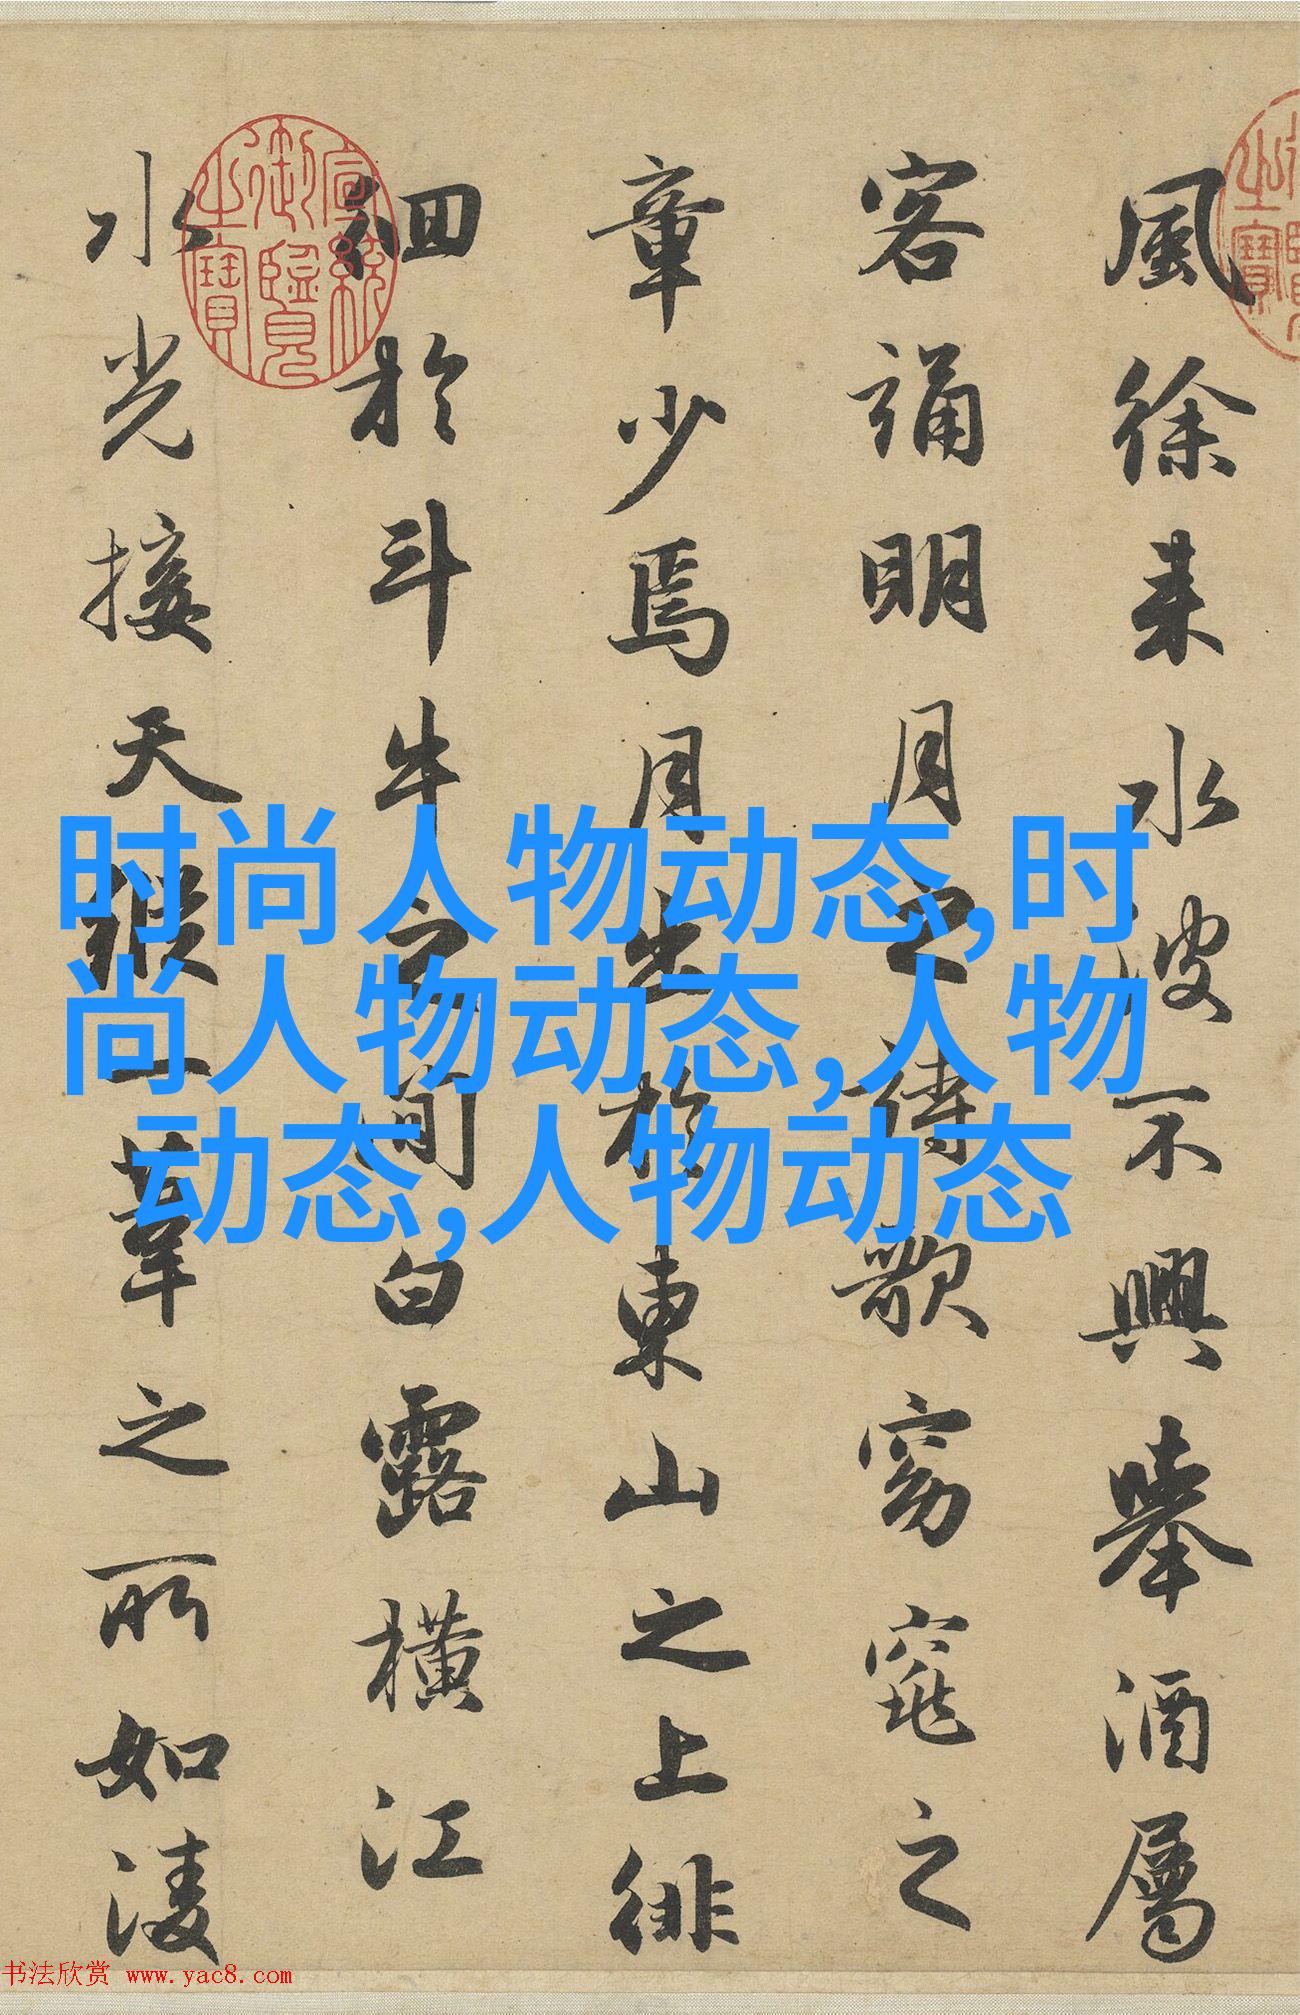 風徐来水波不興舉酒屬
客誦明月之詩歌窈窕之
章少焉月出於東山之上徘
徊於斗牛之間白露橫江
水光接天縱一葦之所如凌
宣統
御覽
之寶
时尚人物动态,时
尚人物动态,人物
动态,人物动态
书法欣赏 www.yac8.com